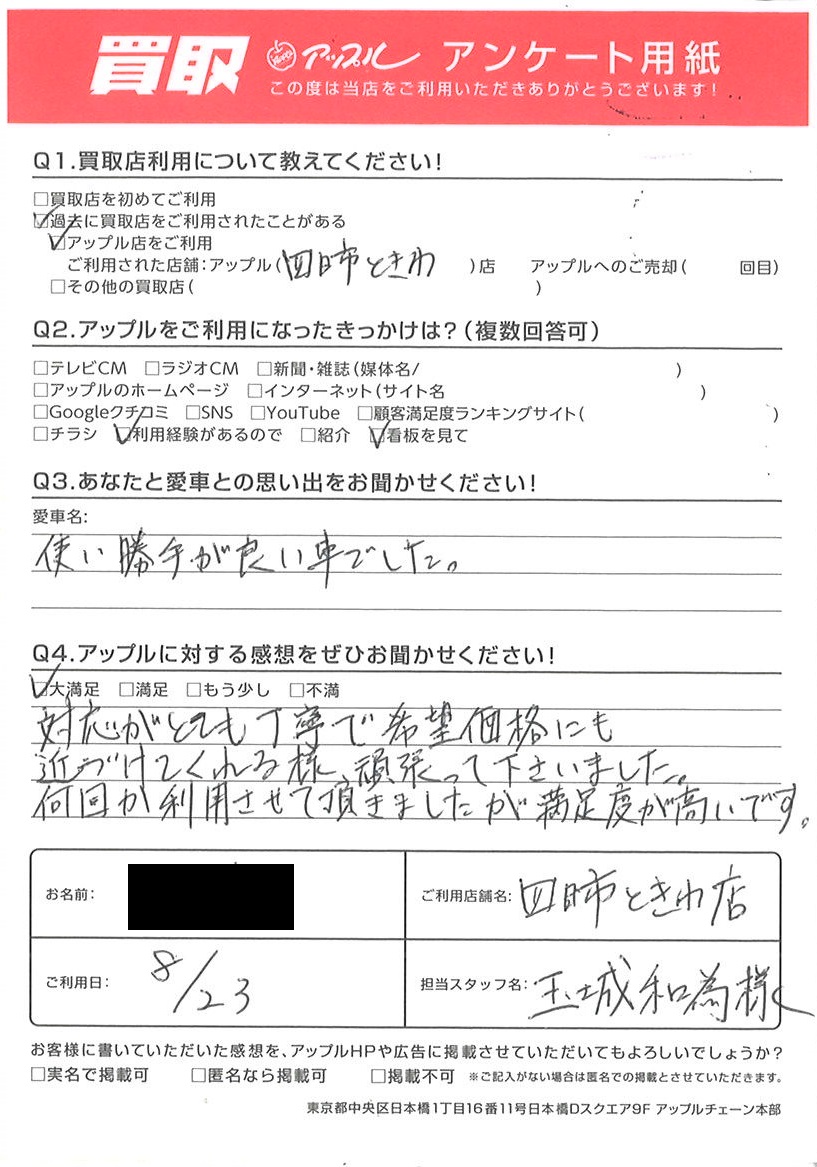 買取 アップル アンケート用紙
この度は当店をご利用いただきありがとうございます!
Q1.買取店利用について教えてください!
□買取店を初めてご利用
☑過去に買取店をご利用されたことがある
☑アップル店をご利用
ご利用された店舗:アップル(四日市ときわ)店 アップルへのご売却( 回目)
□その他の買取店( )
Q2.アップルをご利用になったきっかけは?(複数回答可)
□テレビCM □ラジオCM □新聞・雑誌(媒体名/ )
□アップルのホームページ □インターネット(サイト名 )
□Googleクチコミ □SNS □YouTube □顧客満足度ランキングサイト( )
□チラシ ☑利用経験があるので □紹介 ☑看板を見て
Q3.あなたと愛車との思い出をお聞かせください!
愛車名:
使い勝手が良い車でした。
Q4.アップルに対する感想をぜひお聞かせください!
☑大満足 □満足 □もう少し □不満
対応がとても丁寧で希望価格にも
近づけてくれる様、頑張って下さいました。
何回か利用させて頂きましたが満足度が高いです。
お名前:
ご利用店舗名:四日市ときわ店
ご利用日:8/23
担当スタッフ名:玉城和為様
お客様に書いていただいた感想を、アップルHPや広告に掲載させていただいてもよろしいでしょうか?
□実名で掲載可 □匿名なら掲載可 □掲載不可 ※ご記入がない場合は匿名での掲載とさせていただきます。
東京都中央区日本橋1丁目16番11号日本橋Dスクエア9F アップルチェーン本部